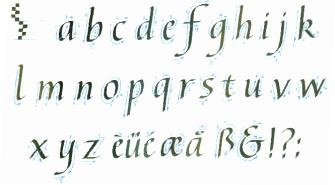 a b c d e f g h i j k
l m n o p q r s t u v w
x y z èüć æå ß&!?;